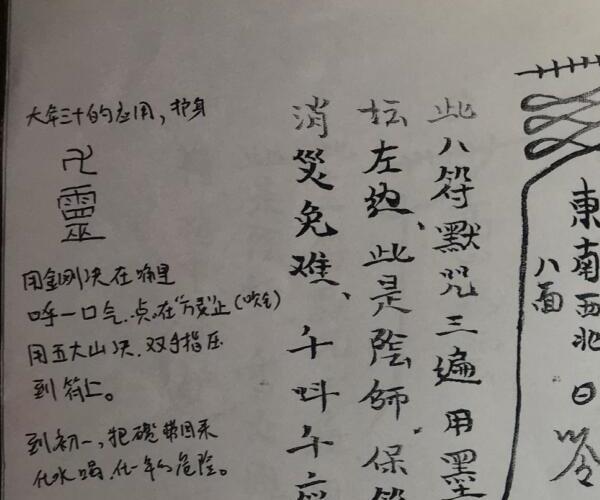 東南西北日
八面
此八符默咒三遍用墨
坛左边、此是陰師保
消災免难、千叫千应
大年三十的应用,护身
卍
靈
用金刚决在嘴里
呼一口气.点在"卍灵"止(吹气)
用五大山决.双手指压
到符上。
到初一,把碗带回来
化水喝.化一年的危险。